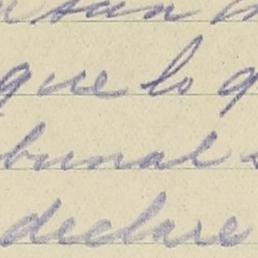 que lo q
bunal
declare